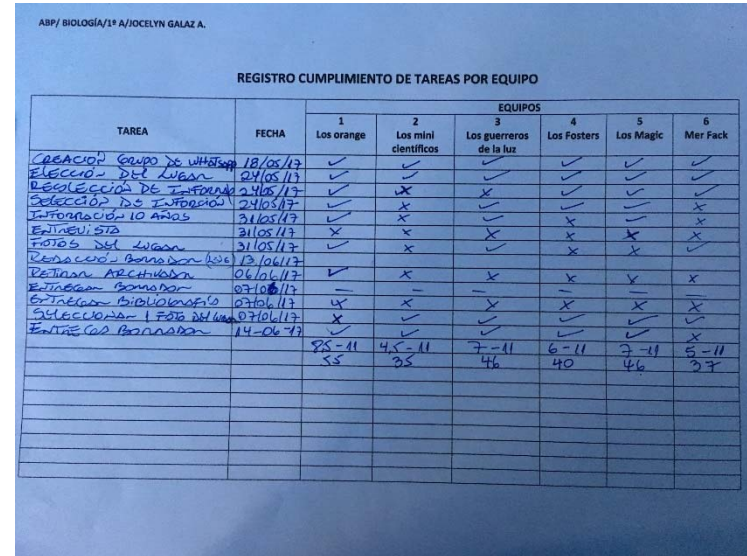 ABP/ BIOLOGÍA/1º A/JOCELYN GALAZ A.
REGISTRO CUMPLIMIENTO DE TAREAS POR EQUIPO
TAREA FECHA EQUIPOS
1 2 3 4 5 6
Los orange Los mini científicos Los guerreros de la luz Los Fosters Los Magic Mer Fack
CREACIÓN GRUPO DE WHATSAPP 18/05/17 ✓ ✓ ✓ ✓ ✓ ✓
ELECCIÓN DEL LUGAR 24/05/17 ✓ ✓ ✓ ✓ ✓ ✓
RECOLECCIÓN DE INFORMA 24/05/17 ✓ X X ✓ ✓ ✓
SELECCIÓN DE 24/05/17 ✓ X ✓ ✓ ✓ X
INFORMACIÓN 10 AÑOS 31/05/17 ✓ X ✓ X ✓ X
ENTREVISTA 31/05/17 X X X X X X
FOTOS DEL LUGAR 31/05/17 ✓ X ✓ X X ✓
REDACCIÓN BORRADOR 13/06/17
RETIRAN ARCHIVADOR 06/06/17 ✓ X X X X X
ENTREGAN BORRADOR 07/06/17 — — — — — —
ENTREGAN BIBLIOGRAFÍA 07/06/17 X X X X X X
SELECCIONAN 1 FOTO DEL 07/06/17 X ✓ ✓ ✓ ✓ ✓
ENTREGA BORRADOR 14-06-17 ✓ ✓ ✓ ✓ ✓ X
8,5-11 4,5-11 7-11 6-11 7-11 5-11
55 35 46 40 46 37